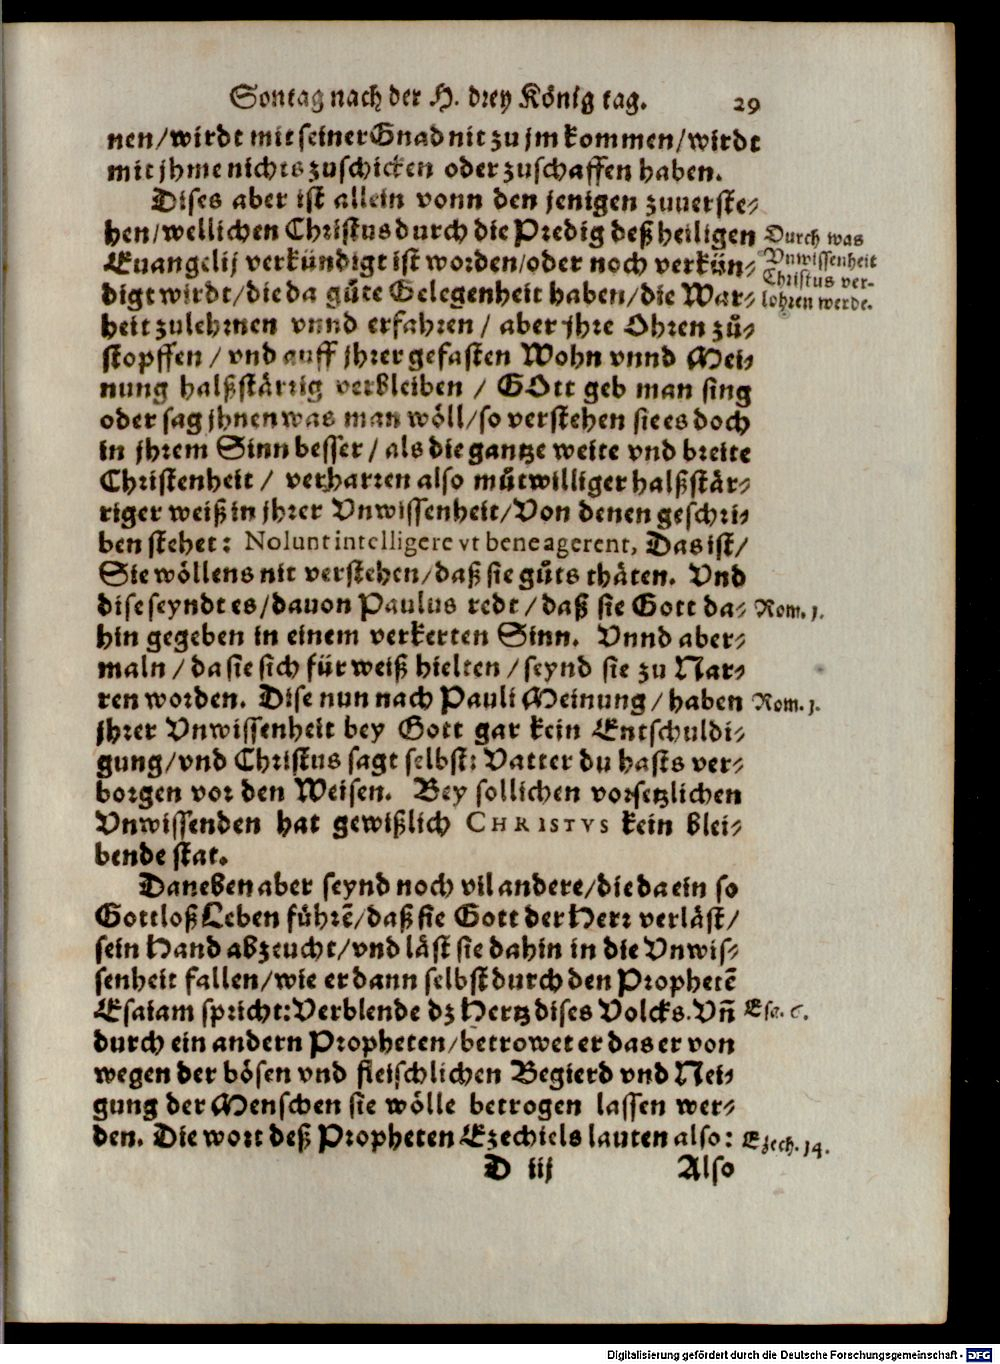 Sontag nach der H. drey König tag. 29
nen/wirdt mit seiner Gnad nit zu jm kommen/wirdt
mit jhme nichts zuschicken oder zuschaffen haben.
Dises aber ist allein vonn den jenigen zuuerste-
hen/wellichen Christus durch die Predig deß heiligen
Euangelij verkündigt ist worden/oder noch verkün-
digt wirdt/die da gůte Gelegenheit haben/die War-
heit zulehrnen vnnd erfahren/ aber jhre Ohren zů-
stopffen/vnd auff jhrer gefasten Wohn vnnd Mei-
nung halßstärrig verbleiben / GOtt geb man sing
oder sag jhnen was man wöll/so verstehen sie es doch
in jhrem Sinn besser/als die gantze weite vnd breite
Christenheit/ verharren also můtwilliger halßstär-
riger weiß in jhrer Vnwissenheit/Von denen geschri-
ben stehet: Nolunt intelligere vt bene agerent, Das ist/
Sie wöllens nit verstehen/daß sie gůts thäten. Vnd
dise seyndt es/dauon Paulus redt/daß sie Gott da-
hin gegeben in einem verkerten Sinn. Vnnd aber-
maln/da sie sich für weiß hielten/seynd sie zu Nar-
ren worden. Dise nun nach Pauli Meinung/haben
jhrer Vnwissenheit bey Gott gar kein Entschuldi-
gung/vnd Christus sagt selbst: Vatter du hasts ver-
borgen vor den Weisen. Bey sollichen vorsetzlichen
Vnwissenden hat gewißlich CHRISTVS kein blei-
bende stat.
Daneben aber seynd noch vil andere/die da ein so
Gottloß Leben führē/daß sie Gott der Herr verläst/
sein Hand abzeucht/vnd läst sie dahin in die Vnwis-
senheit fallen/wie er dann selbst durch den Prophetē
Esaiam spricht: Verblende dz Hertz dises Volcks. Vñ
durch ein andern Propheten/betrowet er das er von
wegen der bösen vnd fleischlichen Begierd vnd Nei-
gung der Menschen sie wölle betrogen lassen wer-
den. Die wort deß Propheten Ezechiels lauten also:
D iij Also
Durch was
Vnwissenheit
Christus ver-
lohren werde.
Rom. 1.
Rom. 1.
Esa. 6.
Ezech. 14.
Digitalisierung gefördert durch die Deutsche Forschungsgemeinschaft - DFG